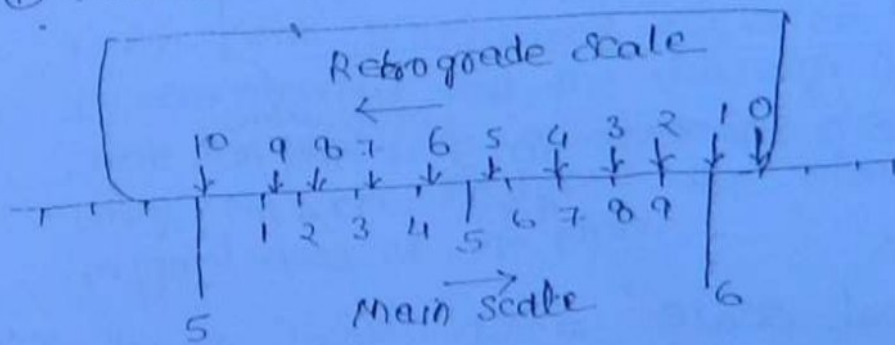 Retrograde scale
10 9 8 7 6 5 4 3 2 1 0
1 2 3 4 5 6 7 8 9
5 6
Main scale